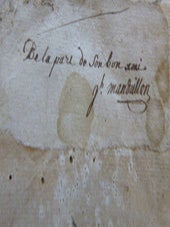 De la part de son bon ami
jh. mandrillon